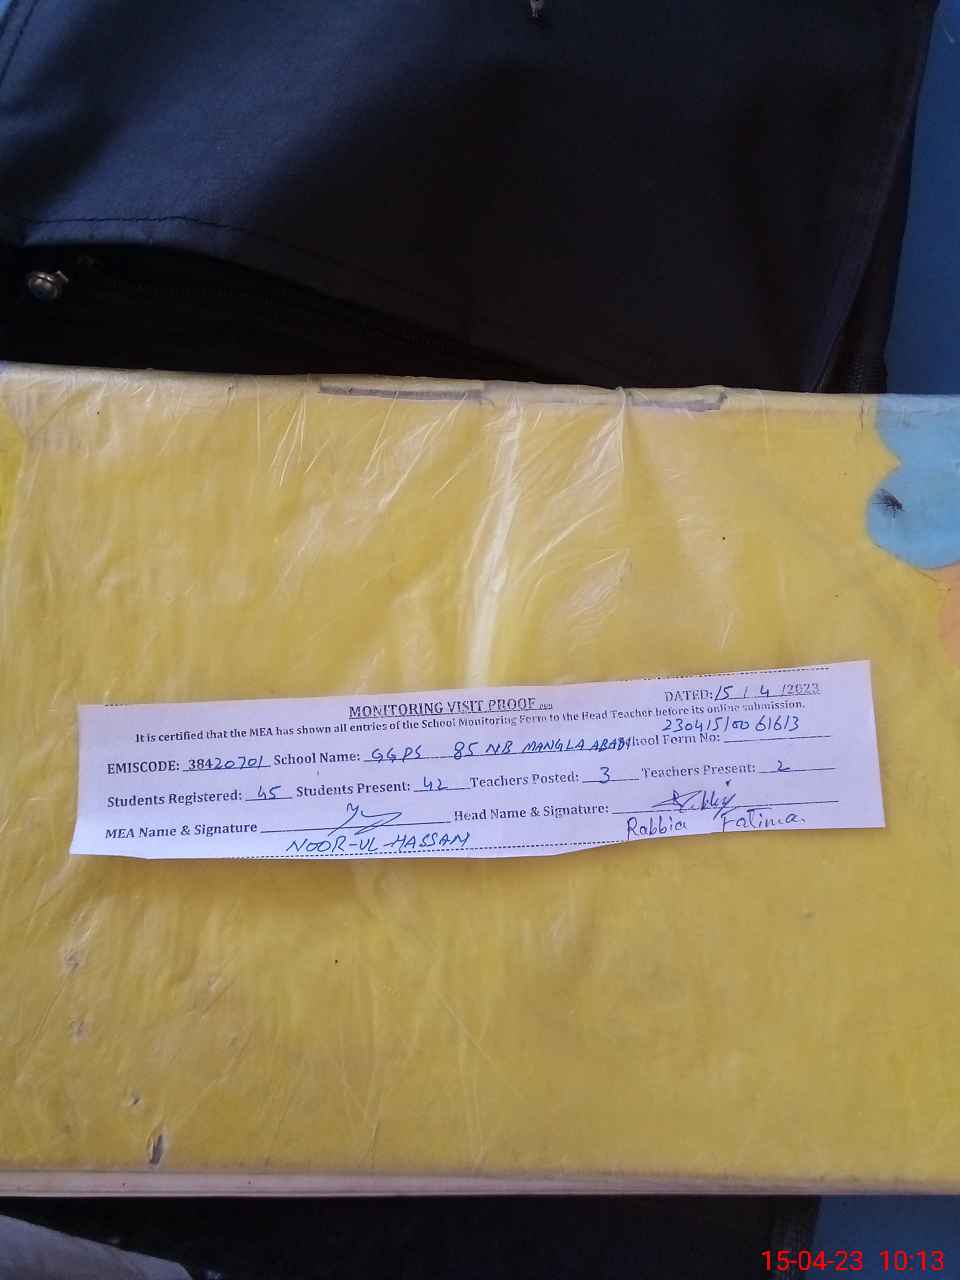 MONITORING VISIT PROOF
DATED: 15 / 4 /2023
It is certified that the MEA has shown all entries of the School Monitoring Form to the Head Teacher before its online submission.
EMISCODE: 38420701 School Name: GGPS 85 NB MANGLA ABAD School Form No: 23041510061613
Students Registered: 45 Students Present: 42 Teachers Posted: 3 Teachers Present: 2
MEA Name & Signature Head Name & Signature:
NOOR-UL-HASSAN Rabbia Fatima.
15-04-23 10:13